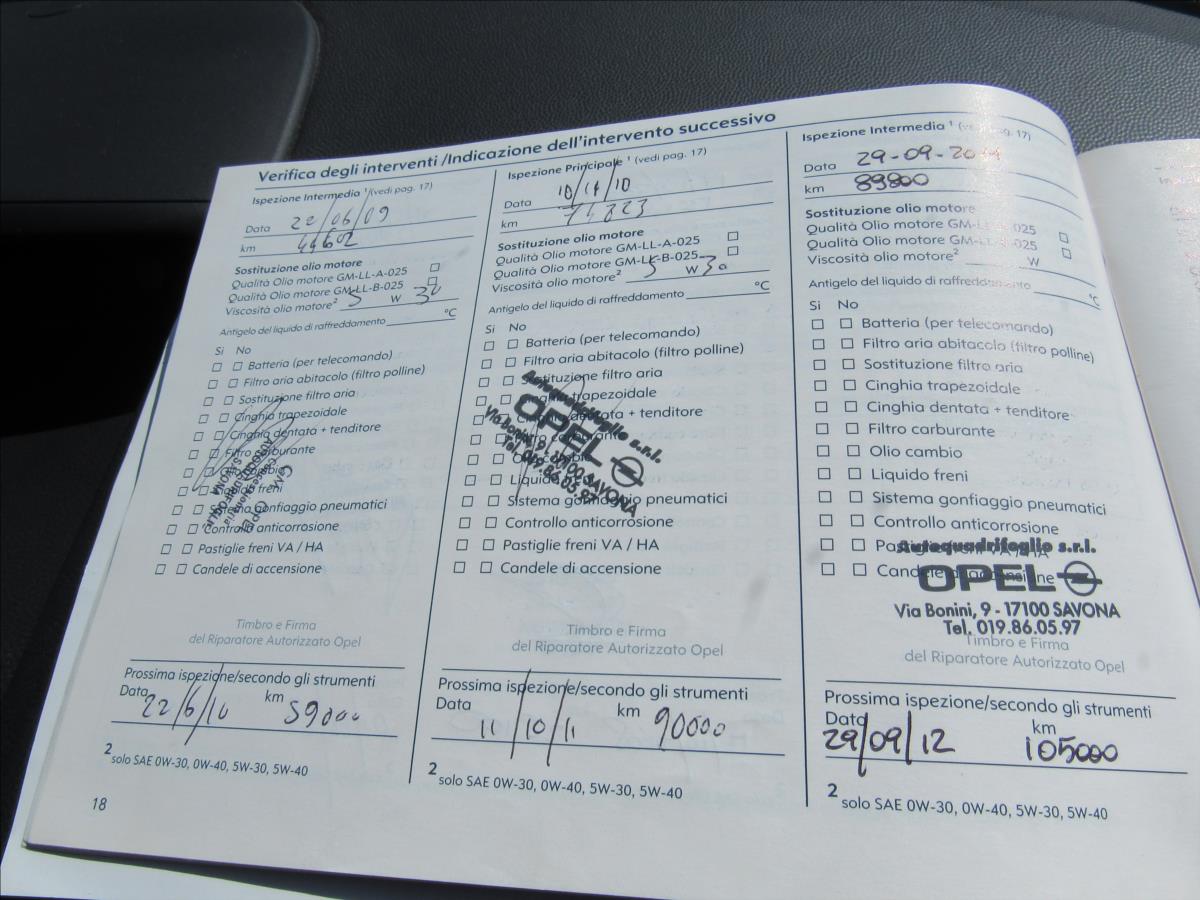 Verifica degli interventi /Indicazione dell'intervento successivo
Ispezione Intermedia ¹/(vedi pag. 17)
Data 22/06/09
km
Sostituzione olio motore
Qualità Olio motore GM-LL-A-025
Qualità Olio motore GM-LL-B-025
Viscosità olio motore² 5 W 30
Antigelo del liquido di raffreddamento °C
Si No
Batteria (per telecomando)
Filtro aria abitacolo (filtro polline)
Sostituzione filtro aria
Cinghia trapezoidale
Cinghia dentata + tenditore
Filtro carburante
freni
Sistema gonfiaggio pneumatici
Controllo anticorrosione
Pastiglie freni VA / HA
Candele di accensione
Timbro e Firma
del Riparatore Autorizzato Opel
Prossima ispezione/secondo gli strumenti
Data 22/6/10 km 59000
² solo SAE 0W-30, 0W-40, 5W-30, 5W-40
18
Ispezione Principale ¹ (vedi pag. 17)
Data
km 74823
Sostituzione olio motore
Qualità Olio motore GM-LL-A-025
Qualità Olio motore GM-LL-B-025
Viscosità olio motore² 5 W 30
Antigelo del liquido di raffreddamento °C
Si No
Batteria (per telecomando)
Filtro aria abitacolo (filtro polline)
Sostituzione filtro aria
Cinghia trapezoidale
Cinghia dentata + tenditore
Filtro carburante
Olio cambio
Liquido freni
Sistema gonfiaggio pneumatici
Controllo anticorrosione
Pastiglie freni VA / HA
Candele di accensione
Autoquadrifoglio s.r.l.
OPEL
Via Bonini, 9 - 17100 SAVONA
Tel. 019.86.05.97
Timbro e Firma
del Riparatore Autorizzato Opel
Prossima ispezione/secondo gli strumenti
Data 11/10/11 km 90000
² solo SAE 0W-30, 0W-40, 5W-30, 5W-40
Ispezione Intermedia ¹ (vedi pag. 17)
Data 29-09-
km 89800
Sostituzione olio motore
Qualità Olio motore GM-LL-A-025
Qualità Olio motore GM-LL-B-025
Viscosità olio motore² W
Antigelo del liquido di raffreddamento °C
Si No
Batteria (per telecomando)
Filtro aria abitacolo (filtro polline)
Sostituzione filtro aria
Cinghia trapezoidale
Cinghia dentata + tenditore
Filtro carburante
Olio cambio
Liquido freni
Sistema gonfiaggio pneumatici
Controllo anticorrosione
Pastiglie freni VA / HA
Candele di accensione
Autoquadrifoglio s.r.l.
OPEL
Via Bonini, 9 - 17100 SAVONA
Tel. 019.86.05.97
Timbro e Firma
del Riparatore Autorizzato Opel
Prossima ispezione/secondo gli strumenti
Data 29/09/12 km 105000
² solo SAE 0W-30, 0W-40, 5W-30, 5W-40